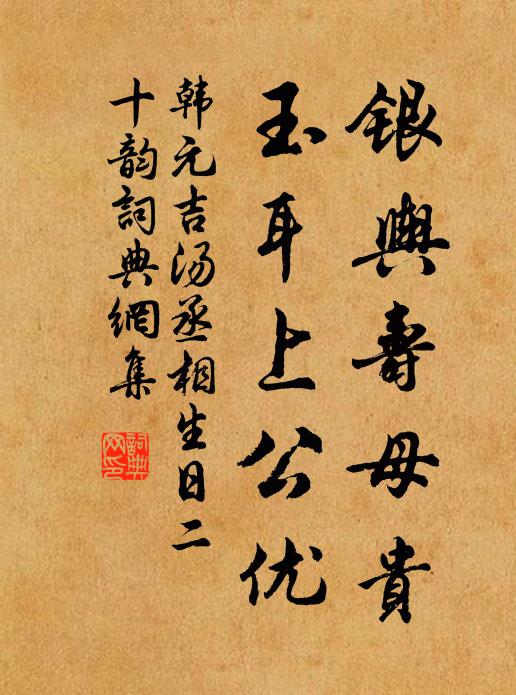 银舆寿母貴
玉耳上公优
韩元吉汤丞相生日二
十韵詞典網集
詞典网印